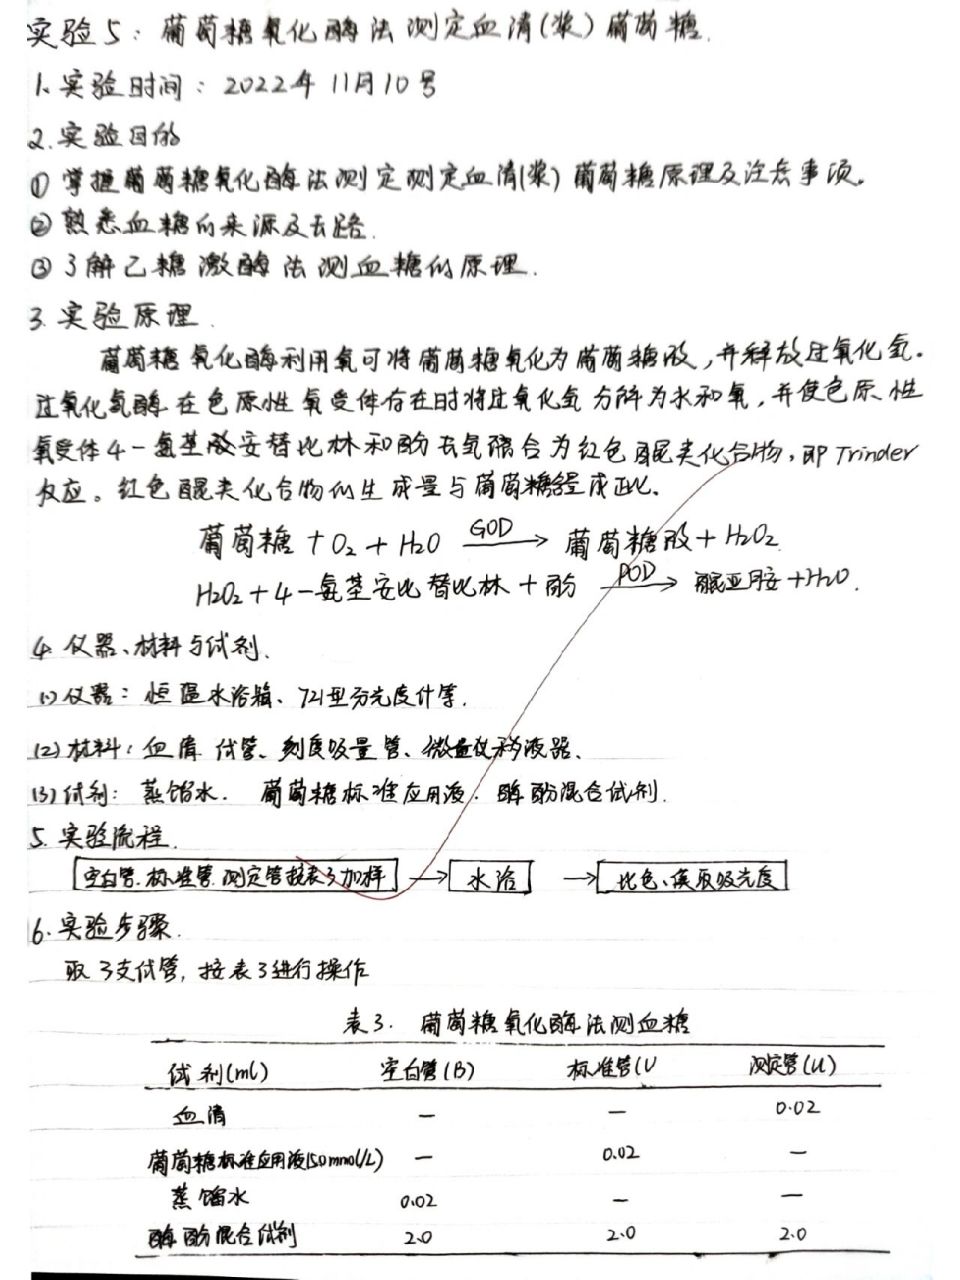 实验5：葡萄糖氧化酶法测定血清(浆)葡萄糖.
1.实验时间：2022年11月10号
2.实验目的
①掌握葡萄糖氧化酶法测定测定血清(浆)葡萄糖原理及注意事项。
②熟悉血糖的来源及去路.
③了解己糖激酶法测血糖的原理.
3.实验原理.
葡萄糖氧化酶利用氧可将葡萄糖氧化为葡萄糖酸,并释放过氧化氢。
过氧化氢酶在色原性氧受体存在时将过氧化氢分解为水和氧,并使色原性
氧受体4-氨基安替比林和酚去氢缩合为红色醌类化合物,即Trinder
反应。红色醌类化合物的生成量与葡萄糖含量成正比.
葡萄糖+O2+H2O GOD→ 葡萄糖酸+H2O2
H2O2+4-氨基安比替比林+酚 POD→ 醌亚胺+H2O.
4.仪器、材料与试剂.
(1)仪器：恒温水浴箱、721型分光度计等.
(2)材料：血清 试管、刻度吸量管、微量移液器、
(3)试剂：蒸馏水. 葡萄糖标准应用液. 酶酚混合试剂.
5.实验流程.
空白管.标准管.测定管按表3加样 → 水浴 → 比色、读取吸光度
6.实验步骤.
取3支试管,按表3进行操作
表3. 葡萄糖氧化酶法测血糖
试剂(mL) 空白管(B) 标准管(U 测定管(U)
血清 — — 0.02
葡萄糖标准应用液(5.0mmol/L) — 0.02 —
蒸馏水 0.02 — —
酶酚混合试剂 2.0 2.0 2.0